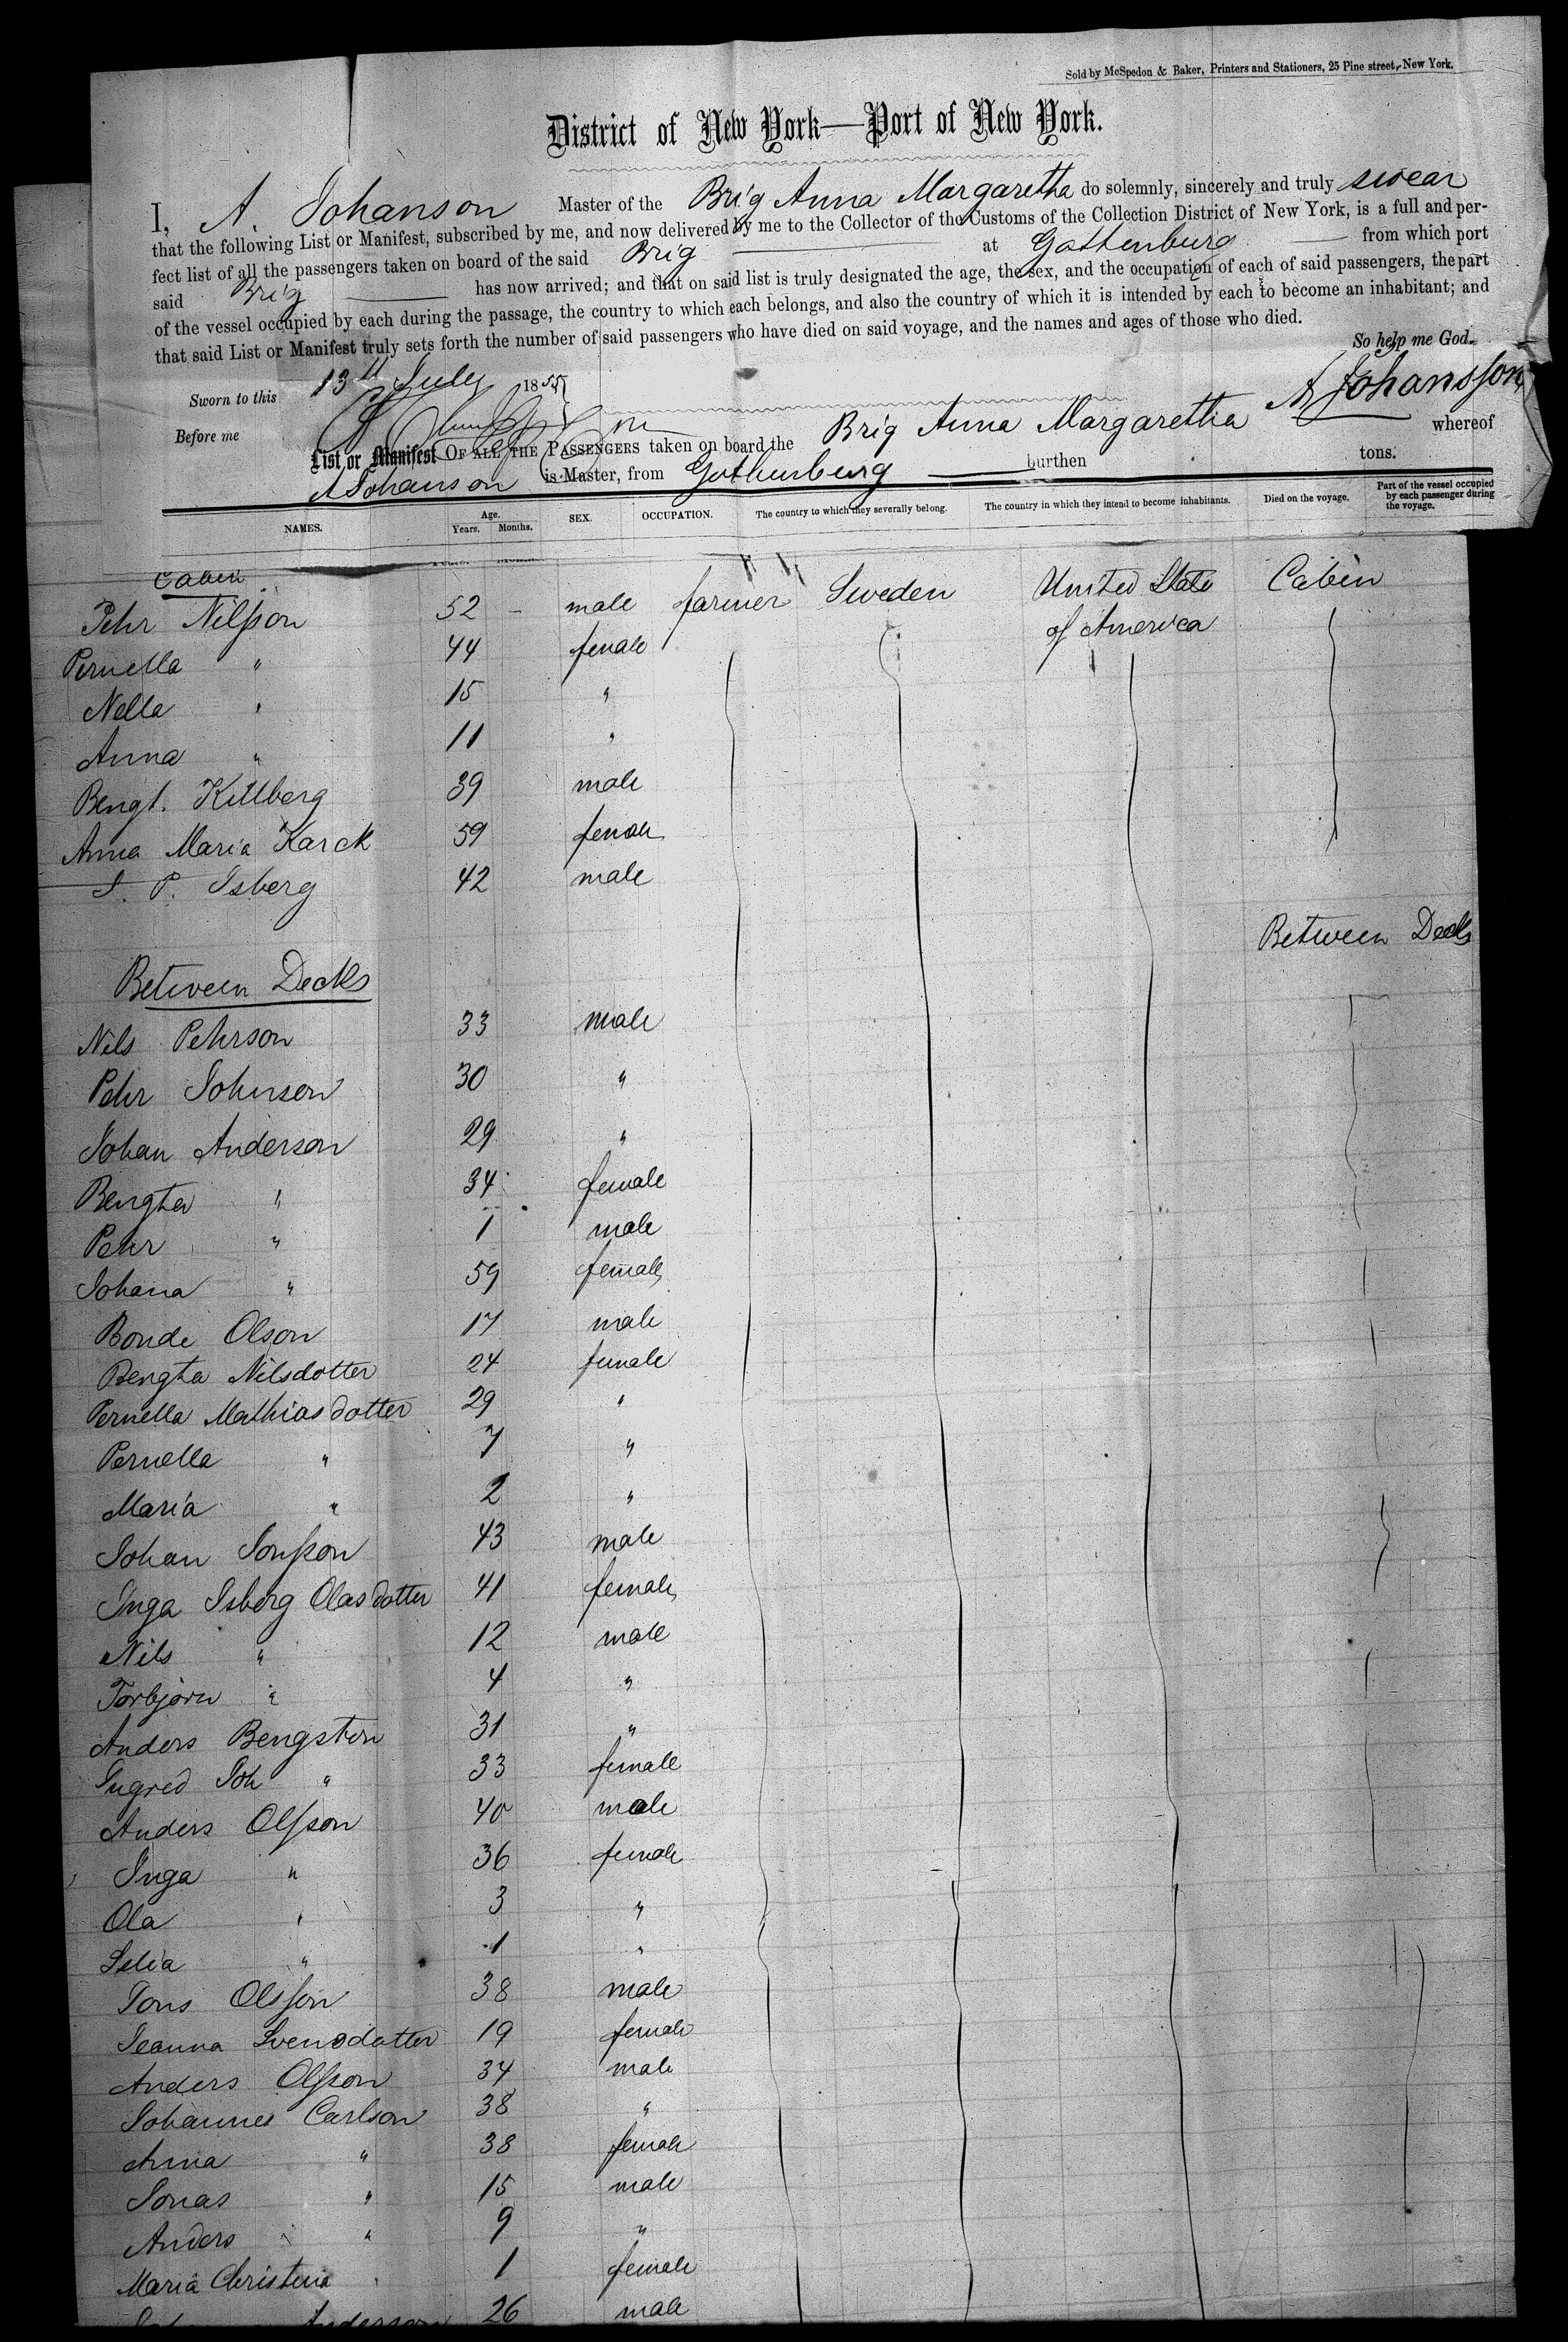 Sold by McSpedon & Baker, Printers and Stationers, 25 Pine street, New York.
District of New York—Port of New York.
I, A. Johanson Master of the Brig Anna Margaretha do solemnly, sincerely and truly swear
that the following List or Manifest, subscribed by me, and now delivered by me to the Collector of the Customs of the Collection District of New York, is a full and per-
fect list of all the passengers taken on board of the said Brig at Gottenburg from which port
said Brig has now arrived; and that on said list is truly designated the age, the sex, and the occupation of each of said passengers, the part
of the vessel occupied by each during the passage, the country to which each belongs, and also the country of which it is intended by each to become an inhabitant; and
that said List or Manifest truly sets forth the number of said passengers who have died on said voyage, and the names and ages of those who died.
So help me God.
Sworn to this 13th July 1855
A Johansson
Before me
List or Manifest OF ALL THE PASSENGERS taken on board the Brig Anna Margaretha whereof
A Johanson is Master, from Gothenburg burthen tons.
NAMES. Age. Years. Months. SEX. OCCUPATION. The country to which they severally belong. The country in which they intend to become inhabitants. Died on the voyage. Part of the vessel occupied by each passenger during the voyage.
Cabin
Pehr Nilsson 52 - male farmer Sweden United State of America Cabin
Pernella " 44 female
Nella " 15 "
Anna " 11 "
Bengt. Killberg 39 male
Anna Maria Karck 59 female
I. P. Isberg 42 male
Between Decks
Between Decks
Nils Pehrson 33 male
Pehr Johnson 30 "
Johan Anderson 29 "
Bengta " 34 female
Pehr " 1 male
Johana " 59 female
Bonde Olson 17 male
Bengta Nilsdotter 24 female
Pernella Mathiasdotter 29 "
Pernella " 7 "
Maria " 2 "
Johan Jonsson 43 male
Inga Isberg Olasdotter 41 female
Nils " 12 male
Torbjorn " 4 "
Anders Bengston 31 "
Ingred Joh " 33 female
Anders Olsson 40 male
Inga " 36 female
Ola " 3 "
Selia " 1 "
Jons Olsson 38 male
Jeanna Svensdotter 19 female
Anders Olsson 34 male
Johannes Carlson 38 "
Anna " 38 female
Jonas " 15 male
Anders " 9 "
Maria Christina " 1 female
Anderson 26 male